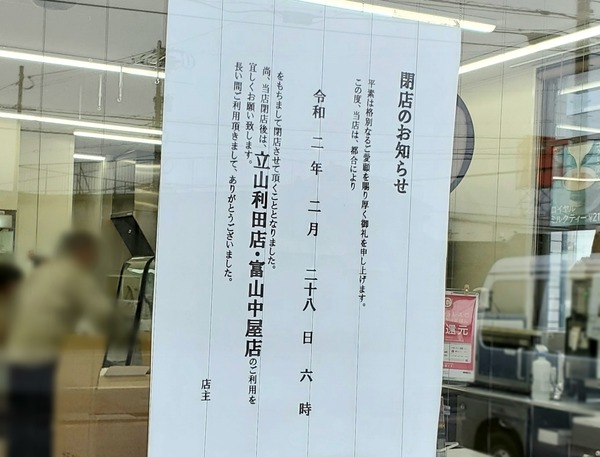 閉店のお知らせ
平素は格別なるご愛顧を賜り厚く御礼を申し上げます。
この度、当店は、都合により
令和 二年 二月 二十八日 六時
をもちまして閉店させて頂くこととなりました。
尚、当店閉店後は、立山利田店・富山中屋店のご利用を
宜しくお願い致します。
長い間ご利用頂きまして、ありがとうございました。
店主
ロイヤル
ミルクティー
還元